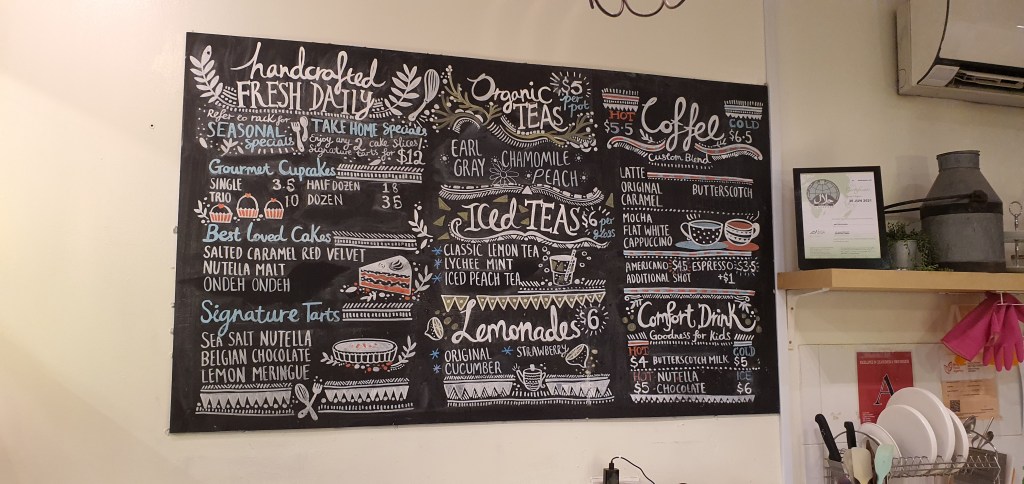 handcrafted
FRESH DAILY
Refer to rack for
SEASONAL
specials
TAKE HOME specials
Enjoy any 2 cake slices/
Signature tarts for $12
Gourmet Cupcakes
SINGLE 3.5 HALF DOZEN 18
TRIO 10 DOZEN 35
Best loved Cakes
SALTED CARAMEL RED VELVET
NUTELLA MALT
ONDEH ONDEH
Signature Tarts
SEA SALT NUTELLA
BELGIAN CHOCOLATE
LEMON MERINGUE
Organic
TEAS
$5
per
pot
EARL
GRAY
CHAMOMILE
PEACH
ICED TEAS
$6 per
glass
* CLASSIC LEMON TEA
* LYCHEE MINT
* ICED PEACH TEA
Lemonades $6
* ORIGINAL * STRAWBERRY
CUCUMBER
HOT
$5.5
Coffee
COLD
$6.5
Custom Blend
LATTE
ORIGINAL BUTTERSCOTCH
CARAMEL
MOCHA
FLAT WHITE
CAPPUCCINO
AMERICANO $4.5 ESPRESSO $3.5
ADDITIONAL SHOT +$1
Comfort Drink
Goodness for Kids
HOT COLD
$4 BUTTERSCOTCH MILK $5
HOT NUTELLA ICE
$5 CHOCOLATE $6
A